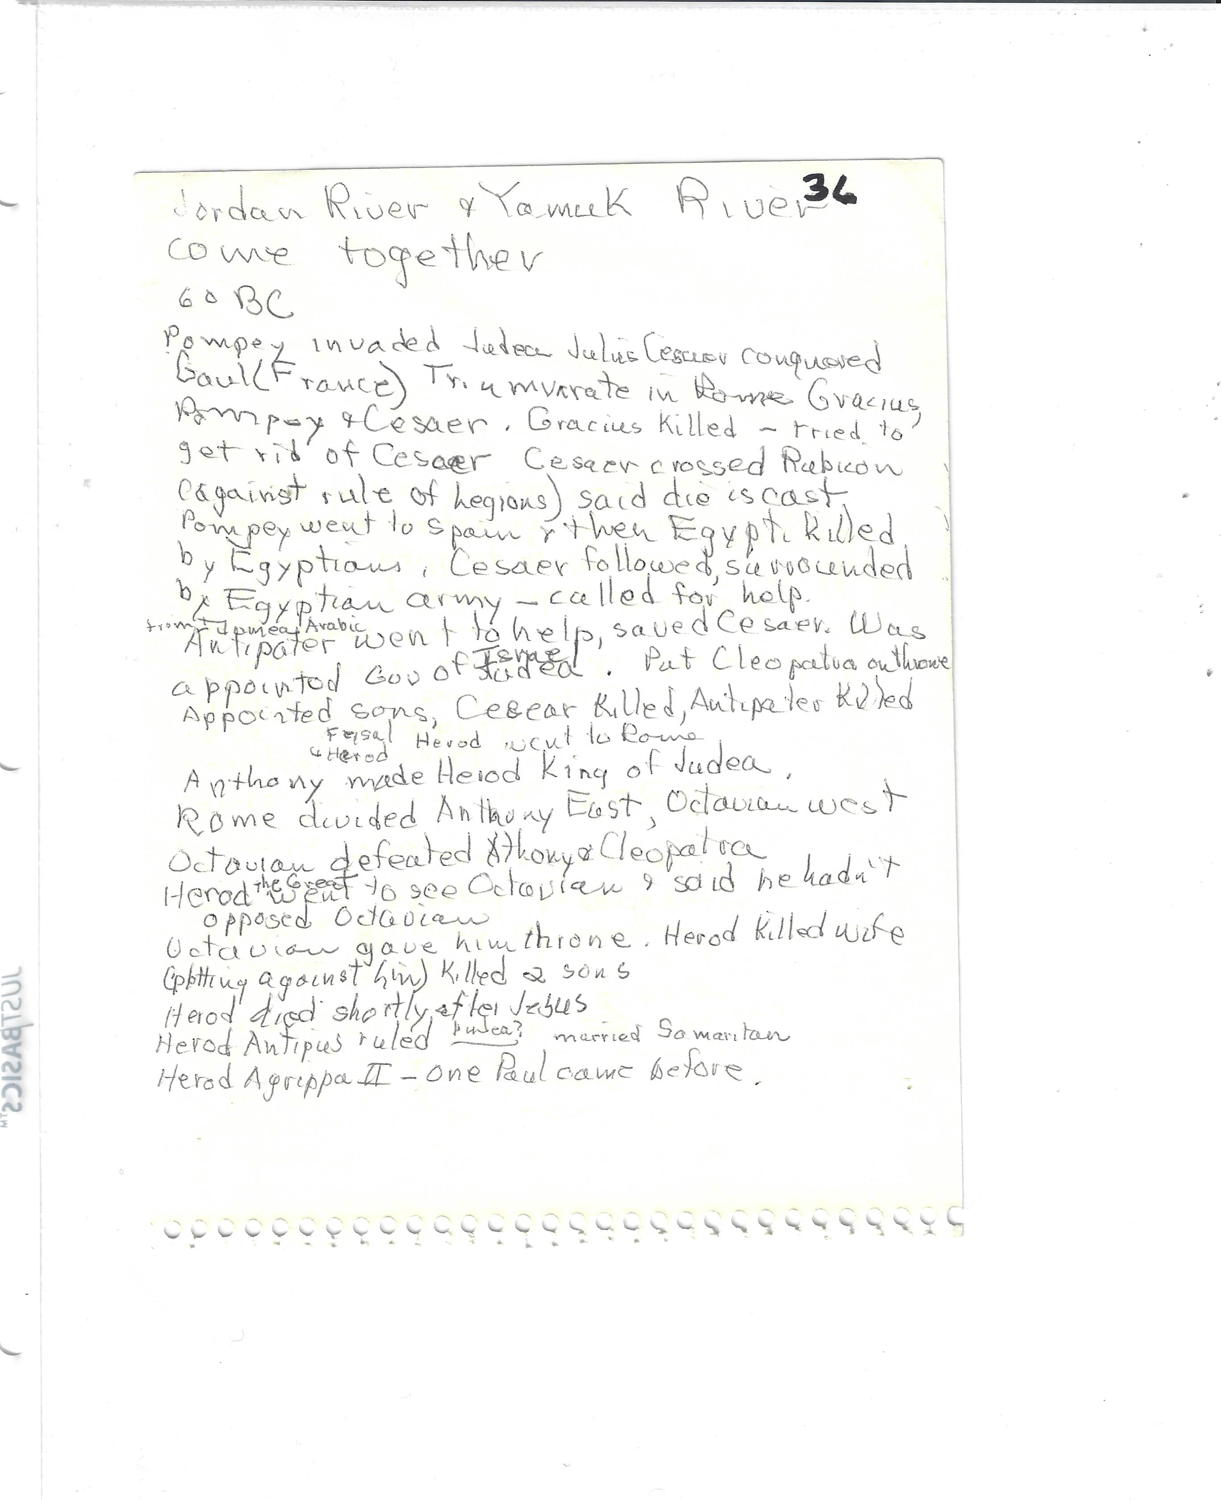 36
Jordan River & Yamuk River
come together
60 BC
Pompey invaded Judea Julius Cesaer conquered
Gaul (France) Triumvirate in Rome Gracius,
Pompey & Cesaer. Gracius Killed - tried to
get rid of Cesaer Cesaer crossed Rubicon
(against rule of Legions) said die is cast.
Pompey went to Spain & then Egypt. Killed
by Egyptians. Cesaer followed, surrounded
by Egyptian army - called for help.
from Idumea, Arabic
Antipater went to help, saved Cesaer. Was
Israel
appointed Gov of Judea. Put Cleopatra on throne
Appointed sons, Cesear Killed, Antipater Killed
Feisal Herod went to Rome
& Herod
Anthony made Herod King of Judea.
Rome divided Anthony East, Octavian west
Octavian defeated Athony & Cleopatra
the Great
Herod went to see Octavian & said he hadn't
opposed Octavian
Octavian gave him throne. Herod Killed wife
(plotting against him) Killed 2 sons
Herod died shortly after Jesus
Herod Antipus ruled Judea? married Samaritan
Herod Agrippa II - one Paul came before.
JUSTBASICS™